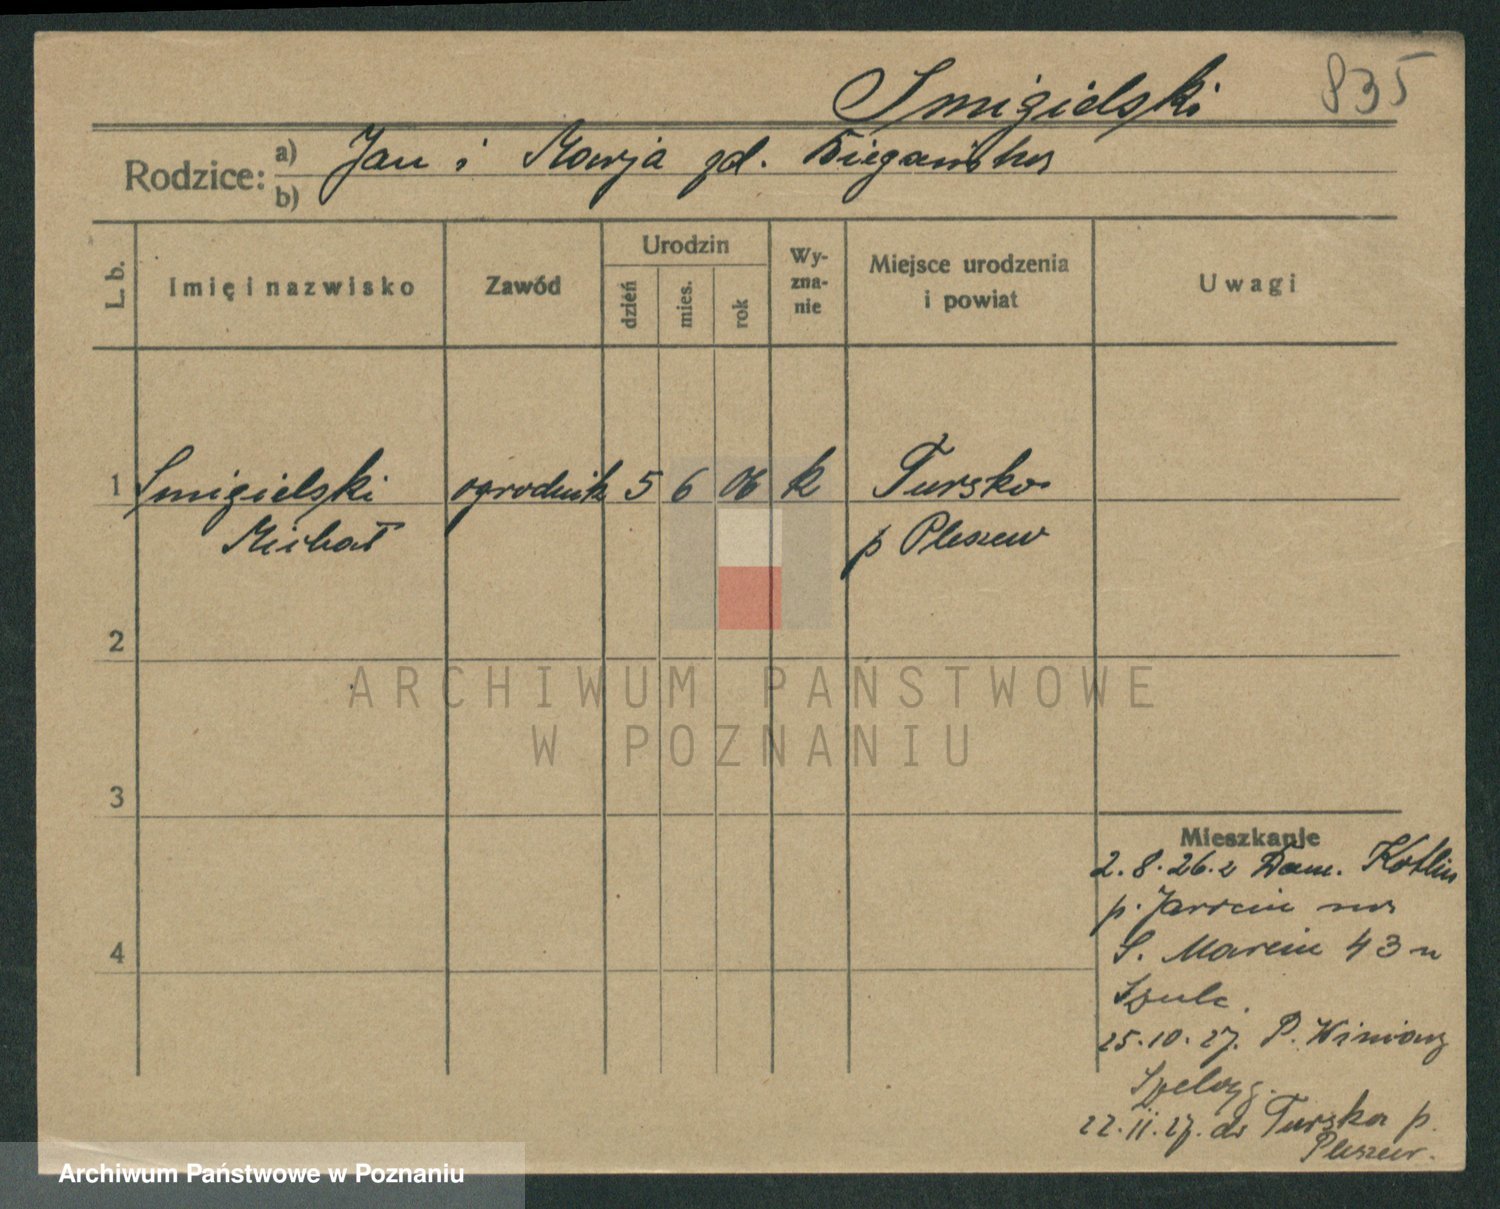 Smigielski
835
Rodzice: a) Jan i Marja zd. Biegańska
b)
L. b.
Imię i nazwisko
Zawód
Urodzin
dzień
mies.
rok
Wy-
zna-
nie
Miejsce urodzenia
i powiat
Uwagi
1 Smigielski ogrodnik 5 6 06 k Tursko
Michał p Pleszew
2
3
4
ARCHIWUM PAŃSTWOWE
W POZNANIU
Mieszkanie
2.8.26. z Dom. Kotlin
p. Jarocin na
S. Marcin 43 u
25.10.27. P. Winiary
22.11.27. do Turska p.
Pleszew.
Archiwum Państwowe w Poznaniu